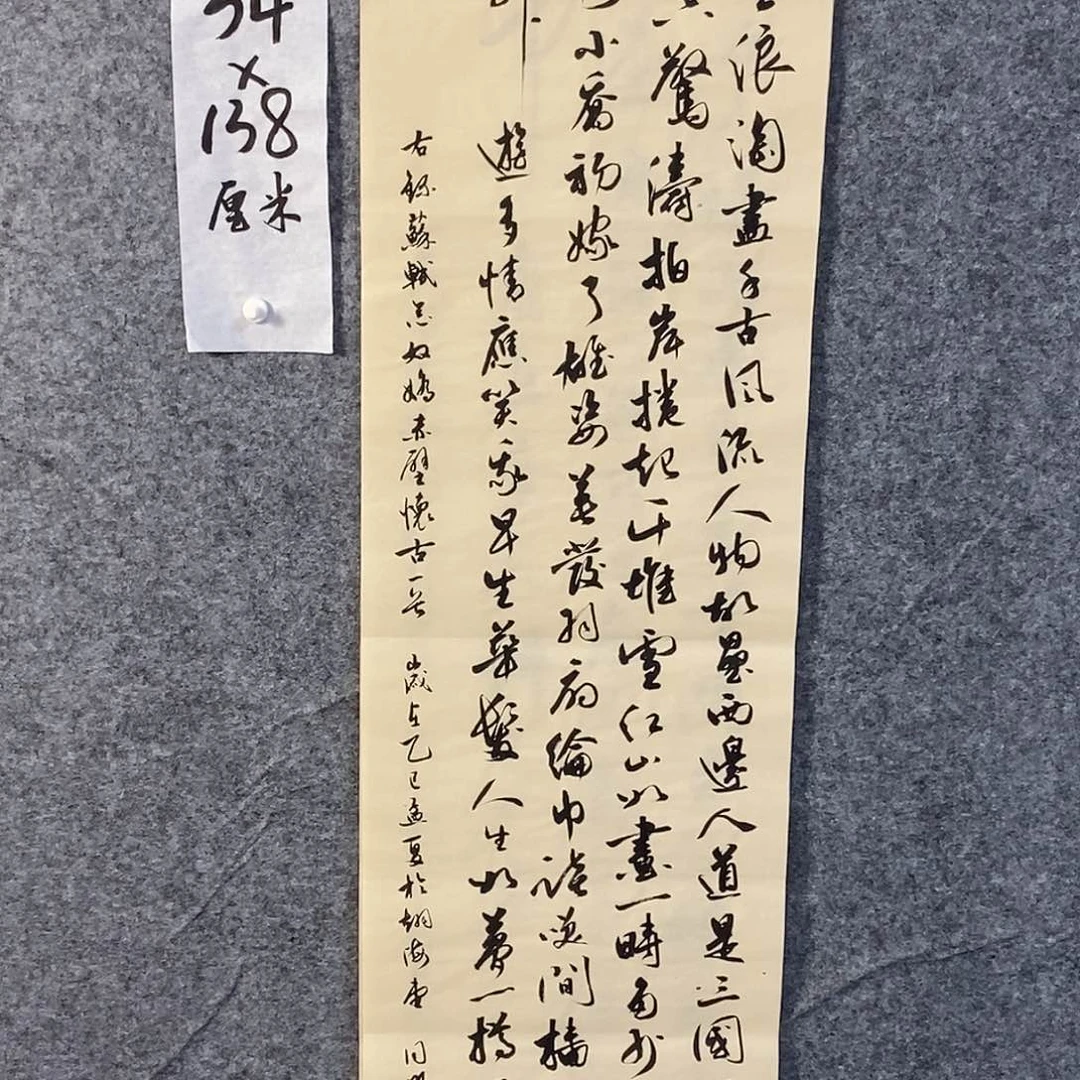 54
×
138
厘米
浪淘盡千古風流人物故壘西邊人道是三國
驚濤拍岸捲起千堆雪江山如畫一時多少
小喬初嫁了雄姿英發羽扇綸巾談笑間檣
遊多情應笑我早生華髮人生如夢一樽
右錄蘇軾念奴嬌赤壁懷古一首 歲在乙巳孟夏於